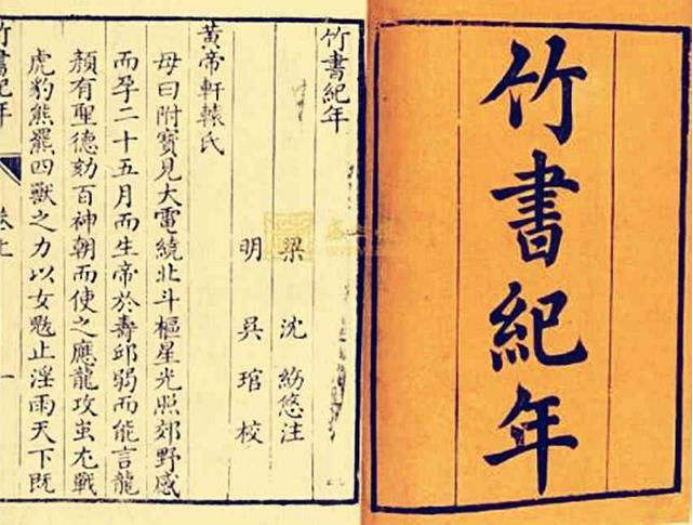 竹書紀年
竹書紀年
梁 沈 紛悠注
明 吳 琯 校
黃帝軒轅氏
母曰附寶見大電繞北斗樞星光照郊野感
而孕二十五月而生帝於壽邱弱而能言龍
顏有聖德劾百神朝而使之應龍攻虫尤戰
虎豹熊羆四獸之力以女魃止淫雨天下既
竹書紀年 卷上 一